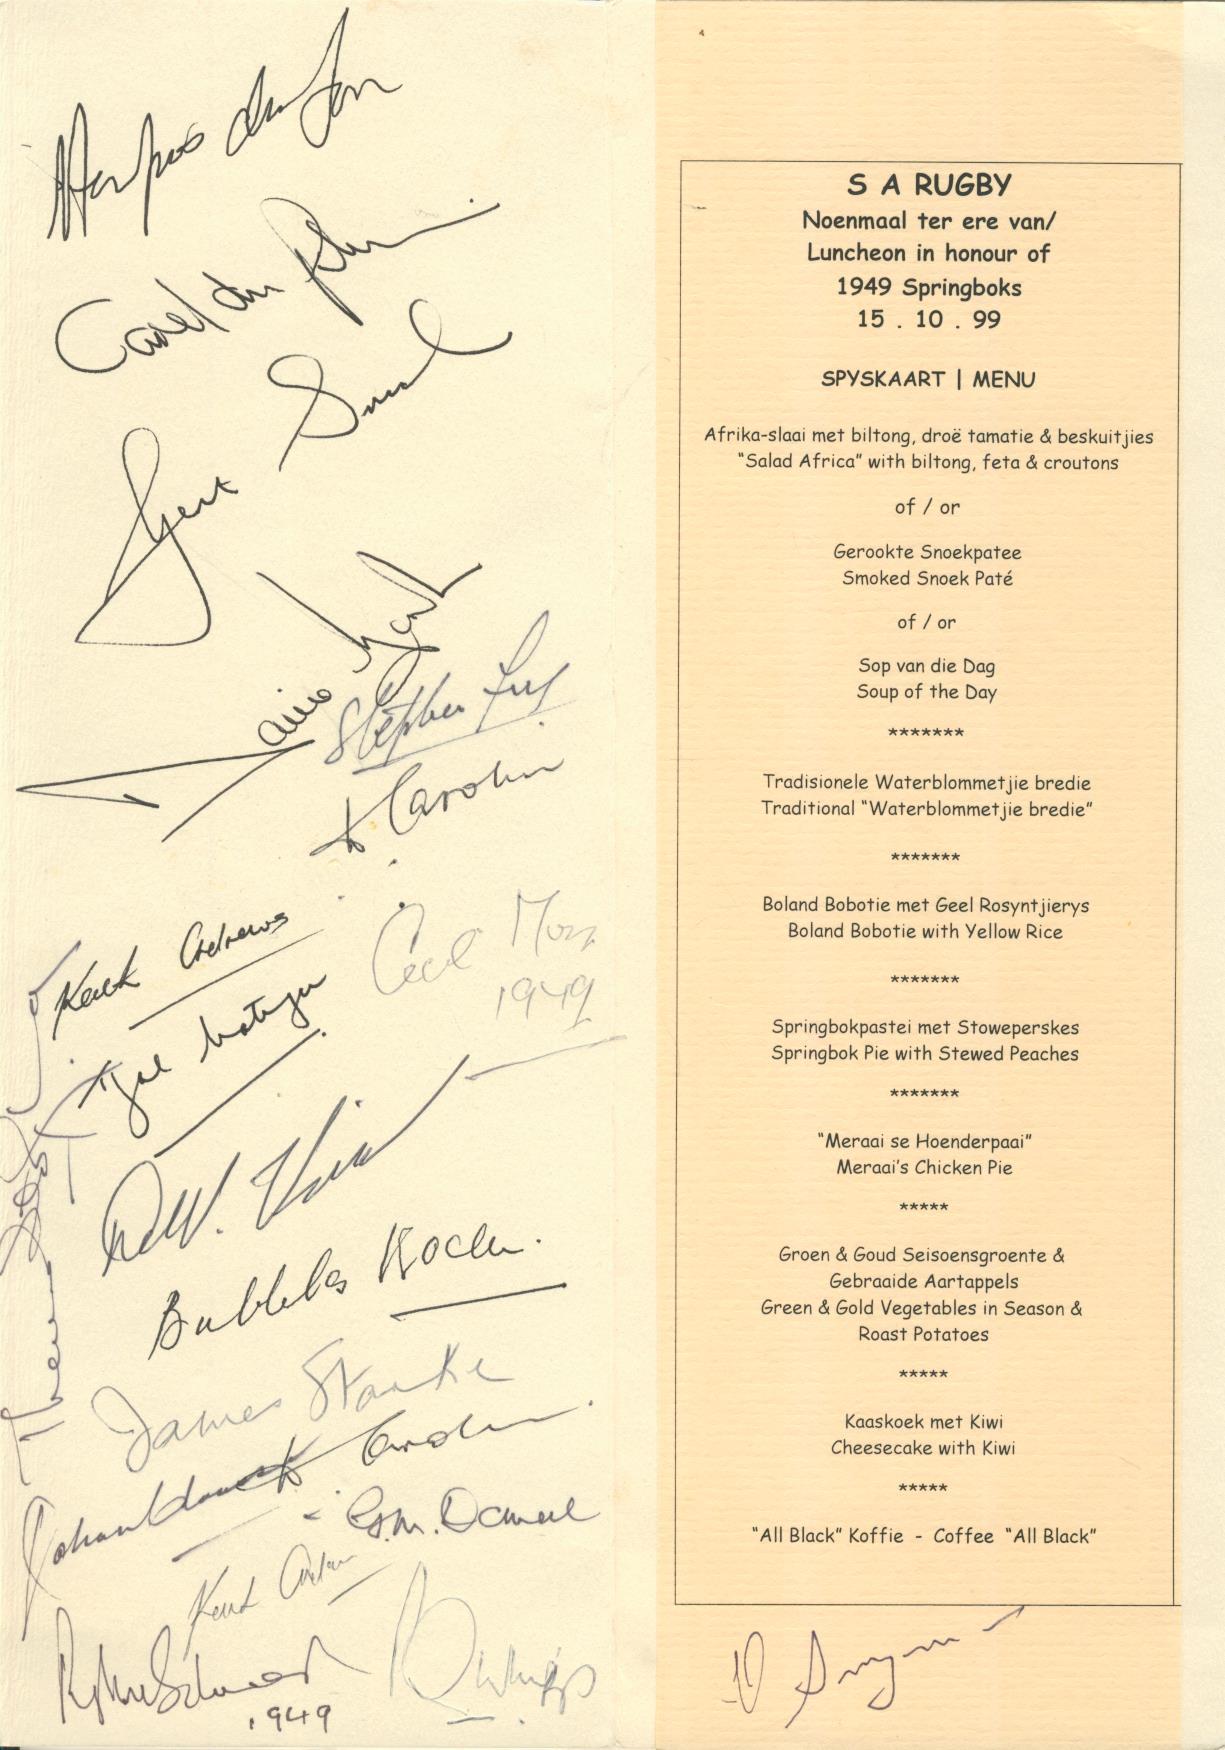 Carel du
Gert Smal
Stephen Fry
& Carolin
Keith Andrews
Cecil Moss
1949
Bubbles Koch.
James Starke
G.M. Daniel
1949
S A RUGBY
Noenmaal ter ere van/
Luncheon in honour of
1949 Springboks
15 . 10 . 99
SPYSKAART | MENU
Afrika-slaai met biltong, droë tamatie & beskuitjies
“Salad Africa” with biltong, feta & croutons
of / or
Gerookte Snoekpatee
Smoked Snoek Paté
of / or
Sop van die Dag
Soup of the Day
*******
Tradisionele Waterblommetjie bredie
Traditional “Waterblommetjie bredie”
*******
Boland Bobotie met Geel Rosyntjierys
Boland Bobotie with Yellow Rice
*******
Springbokpastei met Stoweperskes
Springbok Pie with Stewed Peaches
*******
“Meraai se Hoenderpaai”
Meraai’s Chicken Pie
*****
Groen & Goud Seisoensgroente &
Gebraaide Aartappels
Green & Gold Vegetables in Season &
Roast Potatoes
*****
Kaaskoek met Kiwi
Cheesecake with Kiwi
*****
“All Black” Koffie - Coffee “All Black”